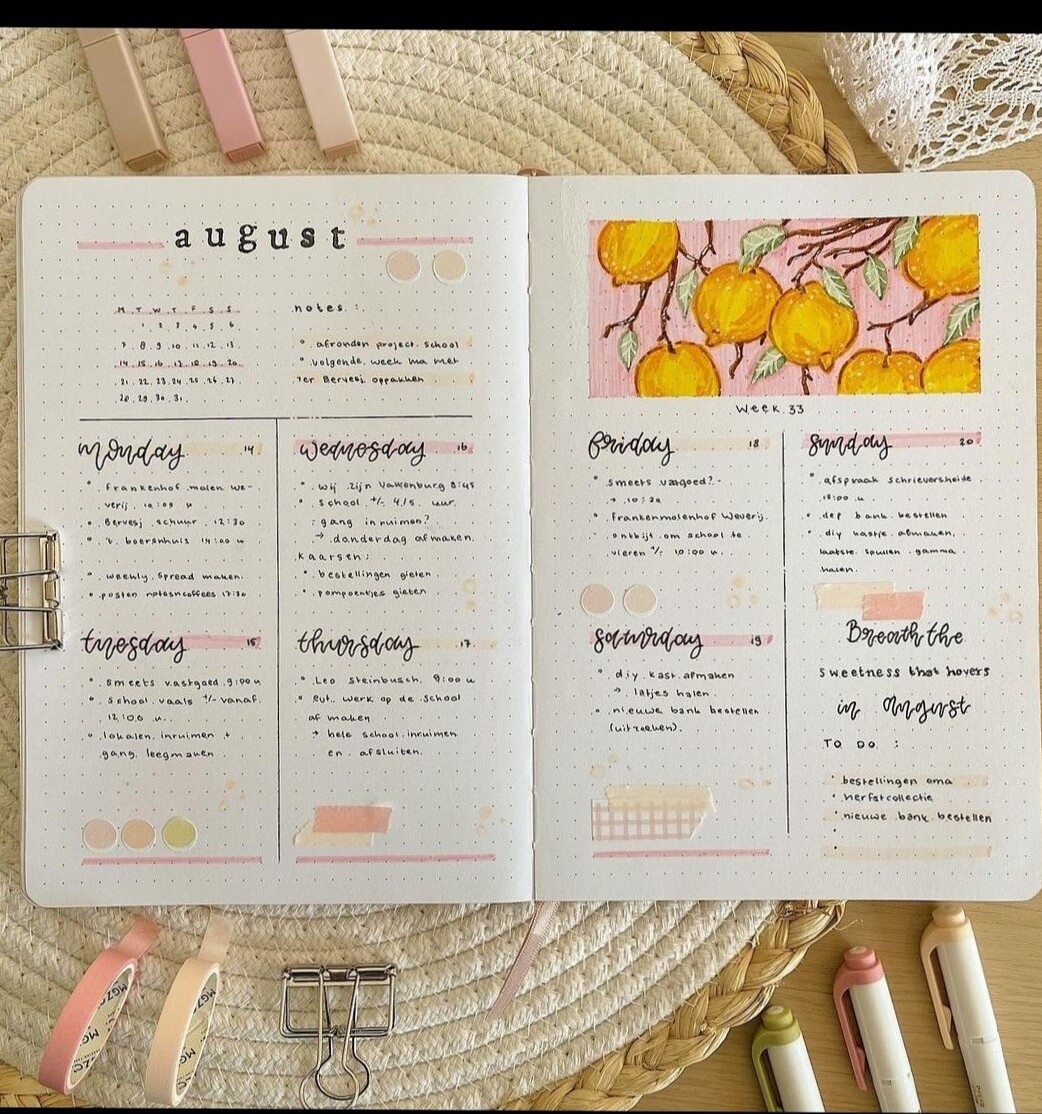 august
M T W T F S S
1 2 3 4 5 6
7 8 9 10 11 12 13
14 15 16 17 18 19 20
21 22 23 24 25 26 27
28 29 30 31
notes:
• afronden project school
• volgende week ma met
Ter Bervesj oppakken
monday 14
• Frankenhof malen we-
verij 10:00 u
• Bervesj schuur 12:30
• 't boershuis 14:00 u
• weekly spread maken
• posten notesncoffees 17:30
tuesday 15
• smeets vastgoed 9:00 u
• School vaals +/- vanaf
12:00 u.
• lokalen inruimen +
gang leegmaken
wednesday 16
• wij zijn Valkenburg 8:45
• School +/- 4/5 uur
: gang inruimen?
→ donderdag afmaken
kaarsen:
• bestellingen gieten
• pompoentjes gieten
thursday 17
• Leo Steinbusch 9:00 u
• evt. werk op de school
af maken
→ hele school inruimen
en afsluiten
week 33
friday 18
• smeets vastgoed?
→ 10:30
• frankenmolenhof Weverij
• ontbijt om school te
vieren +/- 10:00 u
saturday 19
• diy kast afmaken
→ latjes halen
• nieuwe bank bestellen
(uitzoeken)
sunday 20
• afspraak Schrieversheide
13:00 u
• dep bank bestellen
• diy kastje afmaken,
laatste spullen gamma
halen
Breath the
sweetness that hovers
in august
TO DO :
• bestellingen oma
• herfstcollectie
• nieuwe bank bestellen